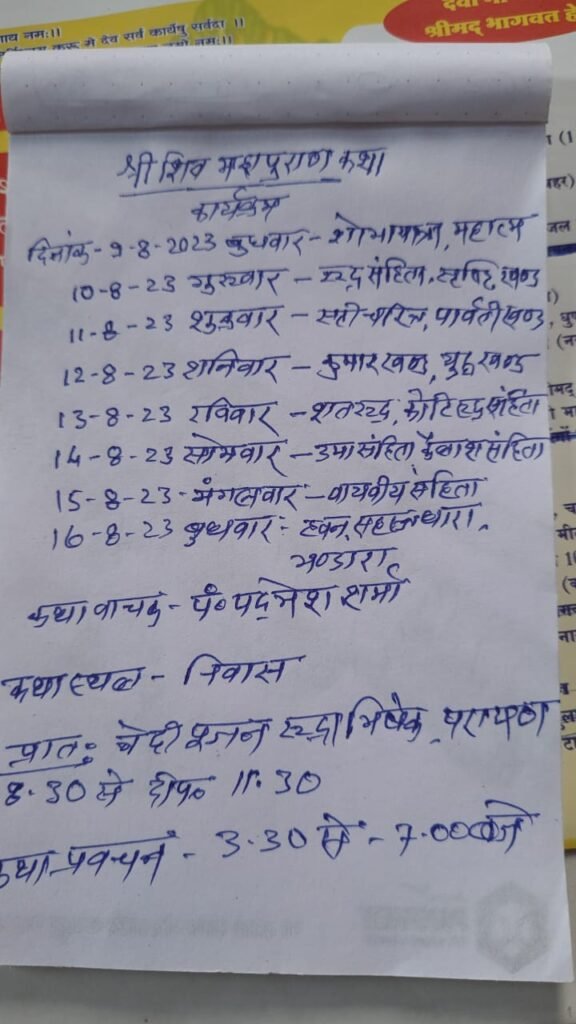 याय नमः।।
कुरू मे देव सर्व कार्येषु सर्वदा ।।
नमः।।
श्रीमद् भागवत
श्री शिव महापुराण कथा
कार्यक्रम
दिनांक - 9-8-2023 बुधवार - शोभायात्रा, महात्म
10-8-23 गुरुवार - रूद्र संहिता, सृष्टि खण्ड
11-8-23 शुक्रवार - सती चरित्र, पार्वती खण्ड
12-8-23 शनिवार - कुमार खण्ड, युद्ध खण्ड
13-8-23 रविवार - शतरुद्र, कोटिरुद्र संहिता
14-8-23 सोमवार - उमा संहिता कैलाश संहिता
15-8-23 - मंगलवार - वायवीय संहिता
16-8-23 बुधवार - हवन, सहस्त्रधारा,
भण्डारा
कथा वाचक - पं॰ पद्मेश शर्मा
कथा स्थल - निवास
प्रातः वेदी पूजन रूद्राभिषेक, परायण
8.30 से दीप॰ 11.30
कथा प्रवचन - 3.30 से - 7.00 बजे